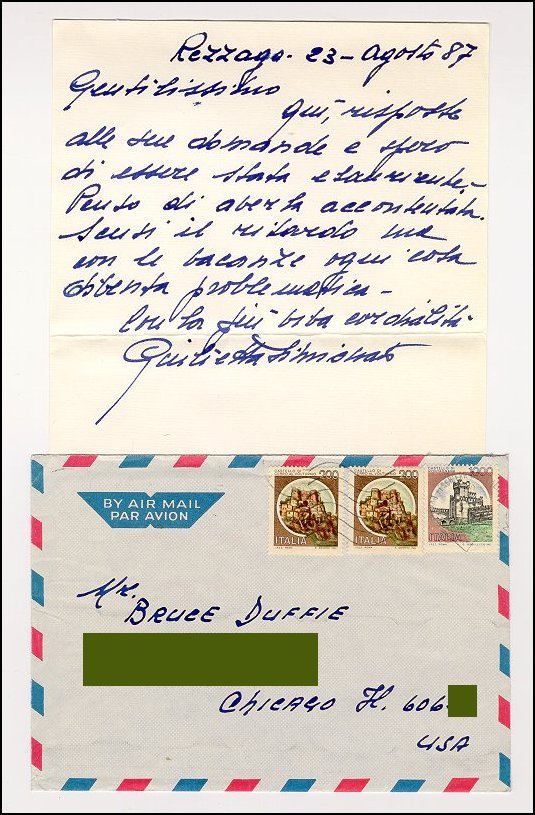 Rezzago. 23-Agosto 87
Gentilissimo
qui, risposte
alle sue domande e spero
di essere stata esauriente,-
Penso di averla accontentata.
Scusi il ritardo ma
con le vacanze ogni cosa
diventa problematica -
Con la più viva cordialità
Giulietta Simionato
300
300
ITALIA
ITALIA
ITALIA
BY AIR MAIL
PAR AVION
Mr.
BRUCE DUFFIE
CHICAGO Il. 606
USA